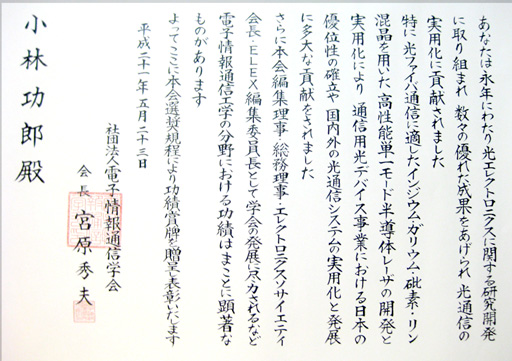 あなたは永年にわたり光エレクトロニクスに関する研究開発
に取り組まれ 数々の優れた成果をあげられ 光通信の
実用化に貢献されました
特に 光ファイバ通信に適したインジウム・ガリウム・砒素・リン
混晶を用いた 高性能単一モード半導体レーザの開発と
実用化により 通信用光デバイス事業における日本の
優位性の確立や 国内外の光通信システムの実用化と発展
に多大な貢献をされました
さらに本会編集理事・総務理事・エレクトロニクスソサイエティ
会長・ELEX編集委員長として学会の発展に尽力されるなど
電子情報通信工学の分野における功績はまことに顕著な
ものがあります
よってここに本会選奨規程により功績賞牌を贈呈し表彰いたします
平成二十一年五月二十三日
社団法人電子情報通信学会
会長 宮原秀夫
小林功郎殿